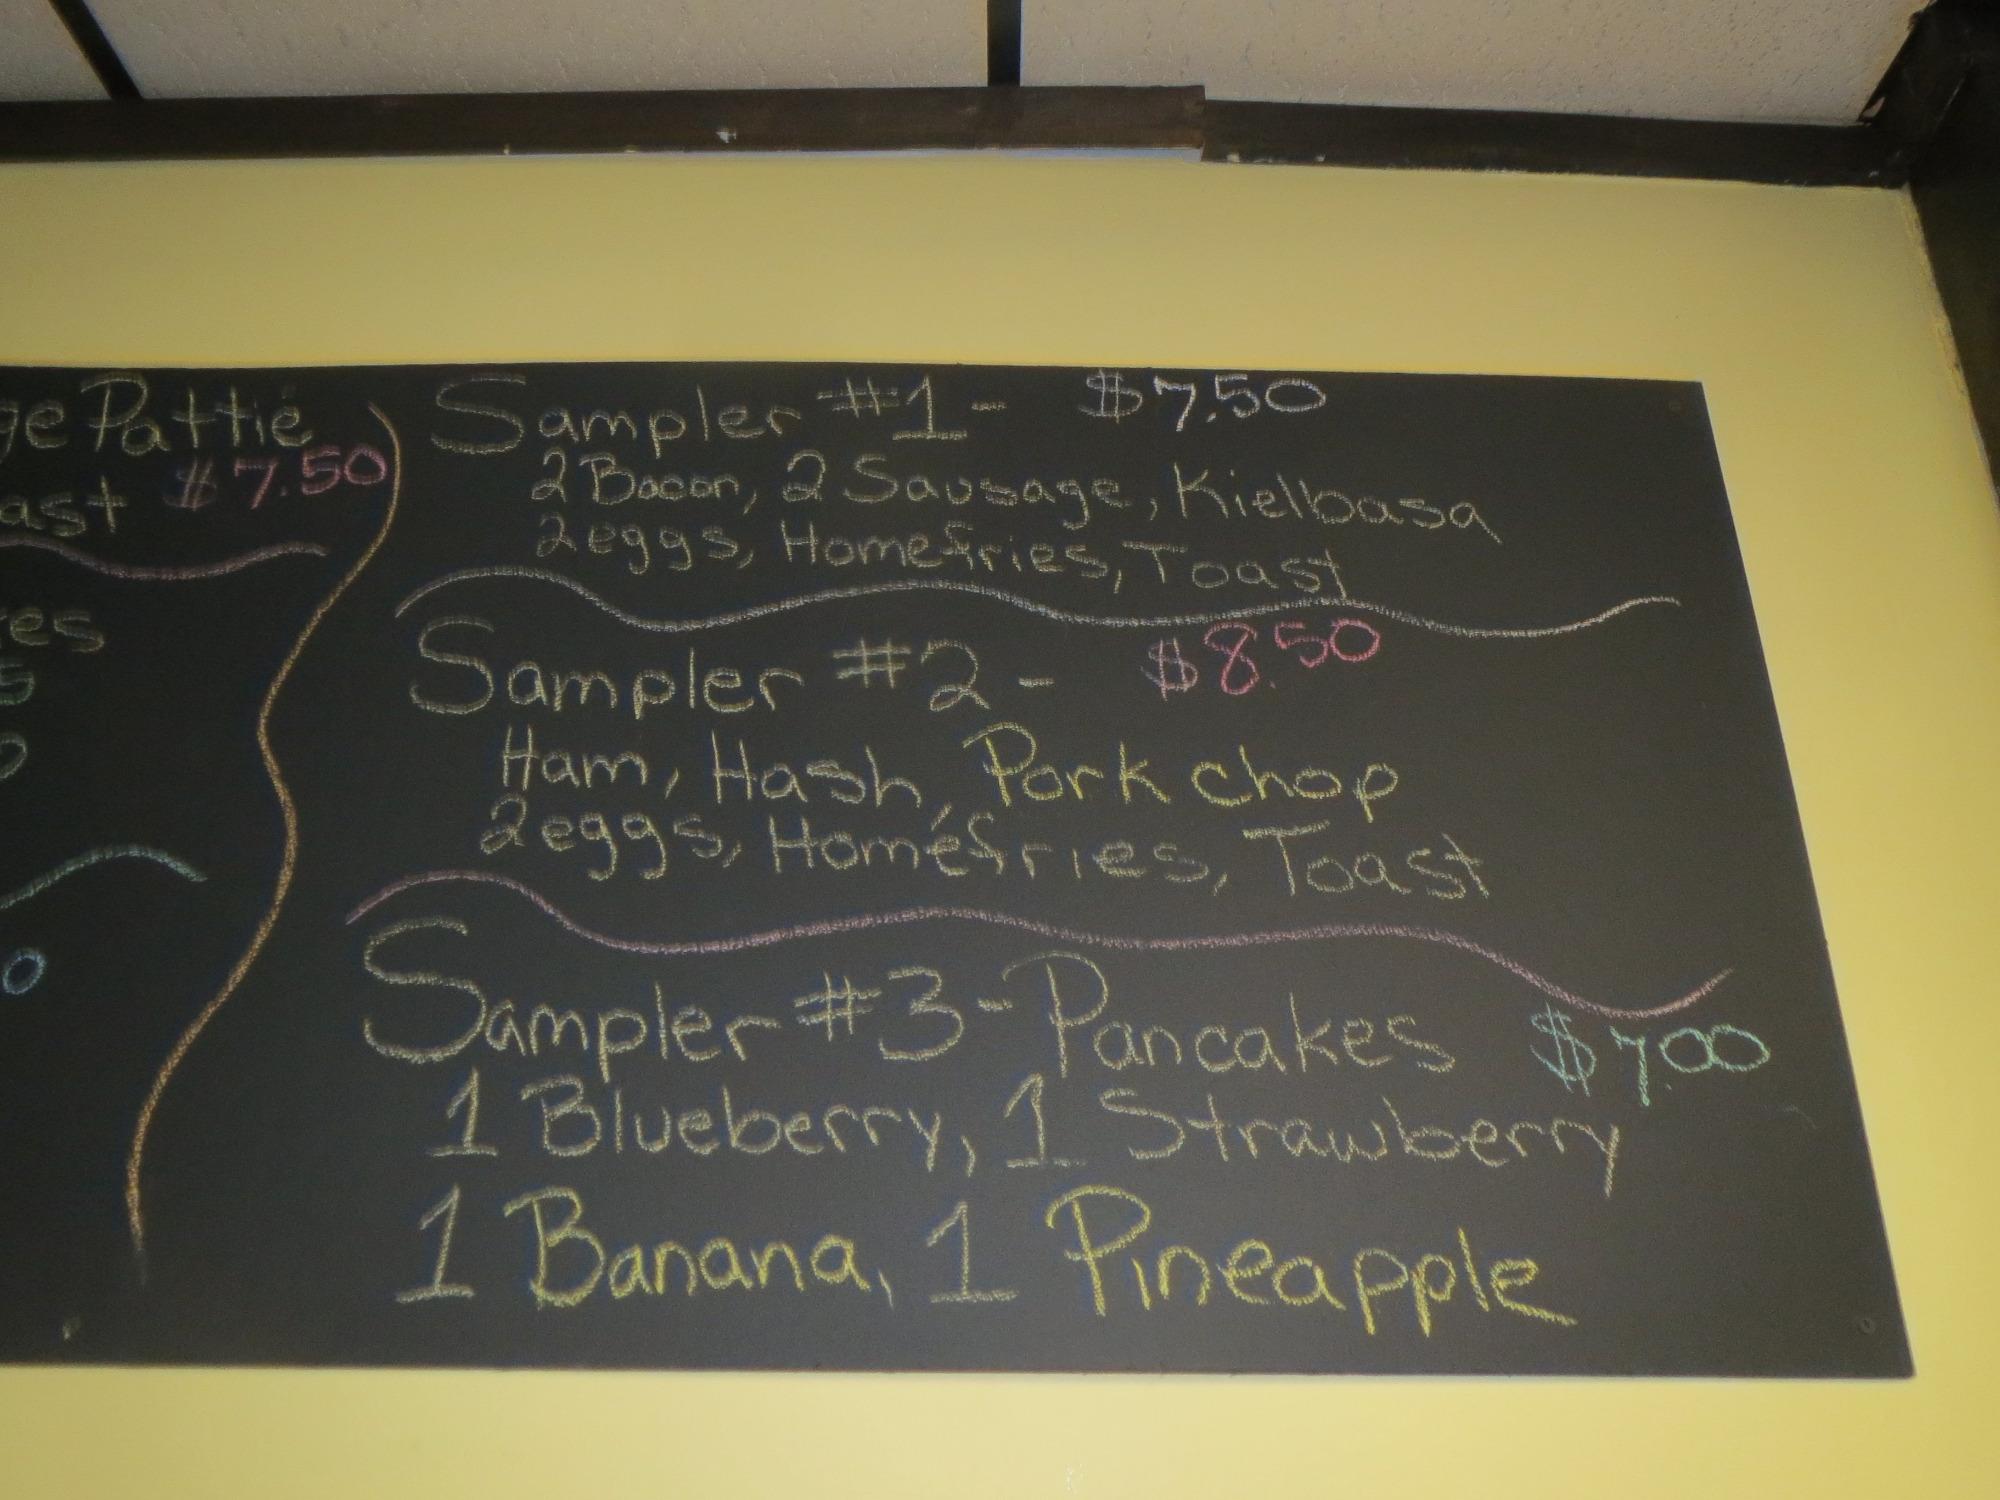 ge Pattie
ast $7.50
res
5
0
Sampler #1 - $7.50
2 Bacon, 2 Sausage, Kielbasa
2 eggs, Homefries, Toast
Sampler #2 - $8.50
Ham, Hash, Pork chop
2 eggs, Homefries, Toast
Sampler #3 - Pancakes $7.00
1 Blueberry, 1 Strawberry
1 Banana, 1 Pineapple